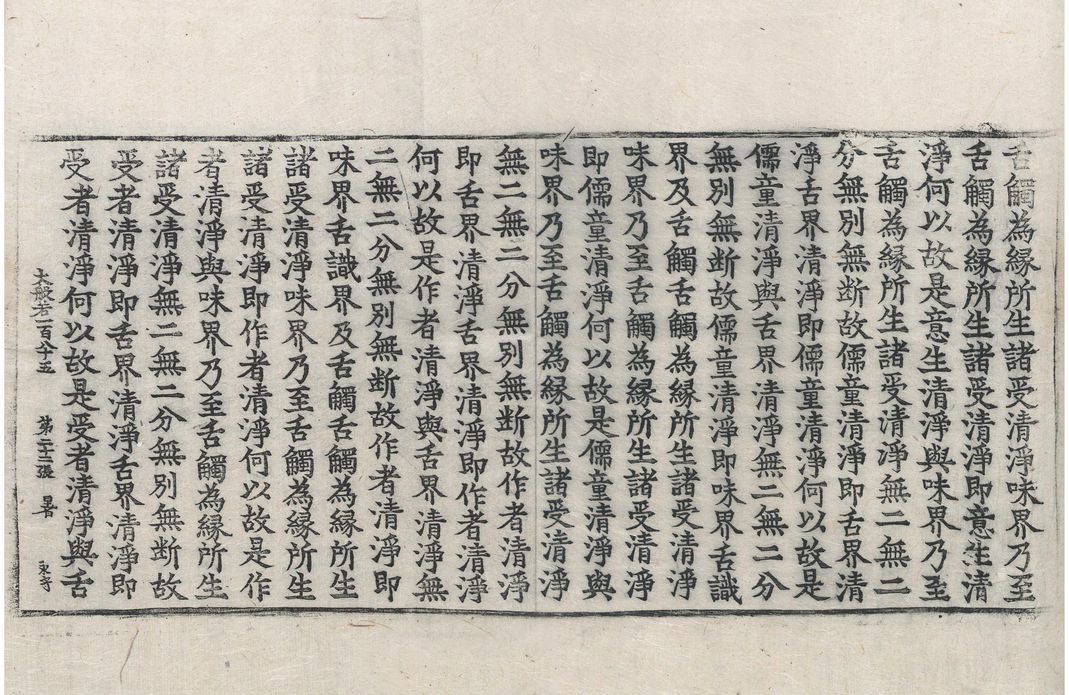 舌觸為緣所生諸受清淨味界乃至
舌觸為緣所生諸受清淨即意生清
淨何以故是意生清淨與味界乃至
舌觸為緣所生諸受清淨無二無二
分無別無断故儒童清淨即舌界清
淨舌界清淨即儒童清淨何以故是
儒童清淨與舌界清淨無二無二分
無別無断故儒童清淨即味界舌識
界及舌觸舌觸為緣所生諸受清淨
味界乃至舌觸為緣所生諸受清淨
即儒童清淨何以故是儒童清淨與
味界乃至舌觸為緣所生諸受清淨
無二無二分無別無断故作者清淨
即舌界清淨舌界清淨即作者清淨
何以故是作者清淨與舌界清淨無
二無二分無別無断故作者清淨即
味界舌識界及舌觸舌觸為緣所生
諸受清淨味界乃至舌觸為緣所生
諸受清淨即作者清淨何以故是作
者清淨與味界乃至舌觸為緣所生
諸受清淨無二無二分無別無断故
受者清淨即舌界清淨舌界清淨即
受者清淨何以故是受者清淨與舌
大般若一百八十五 第二十二張 暑 永守